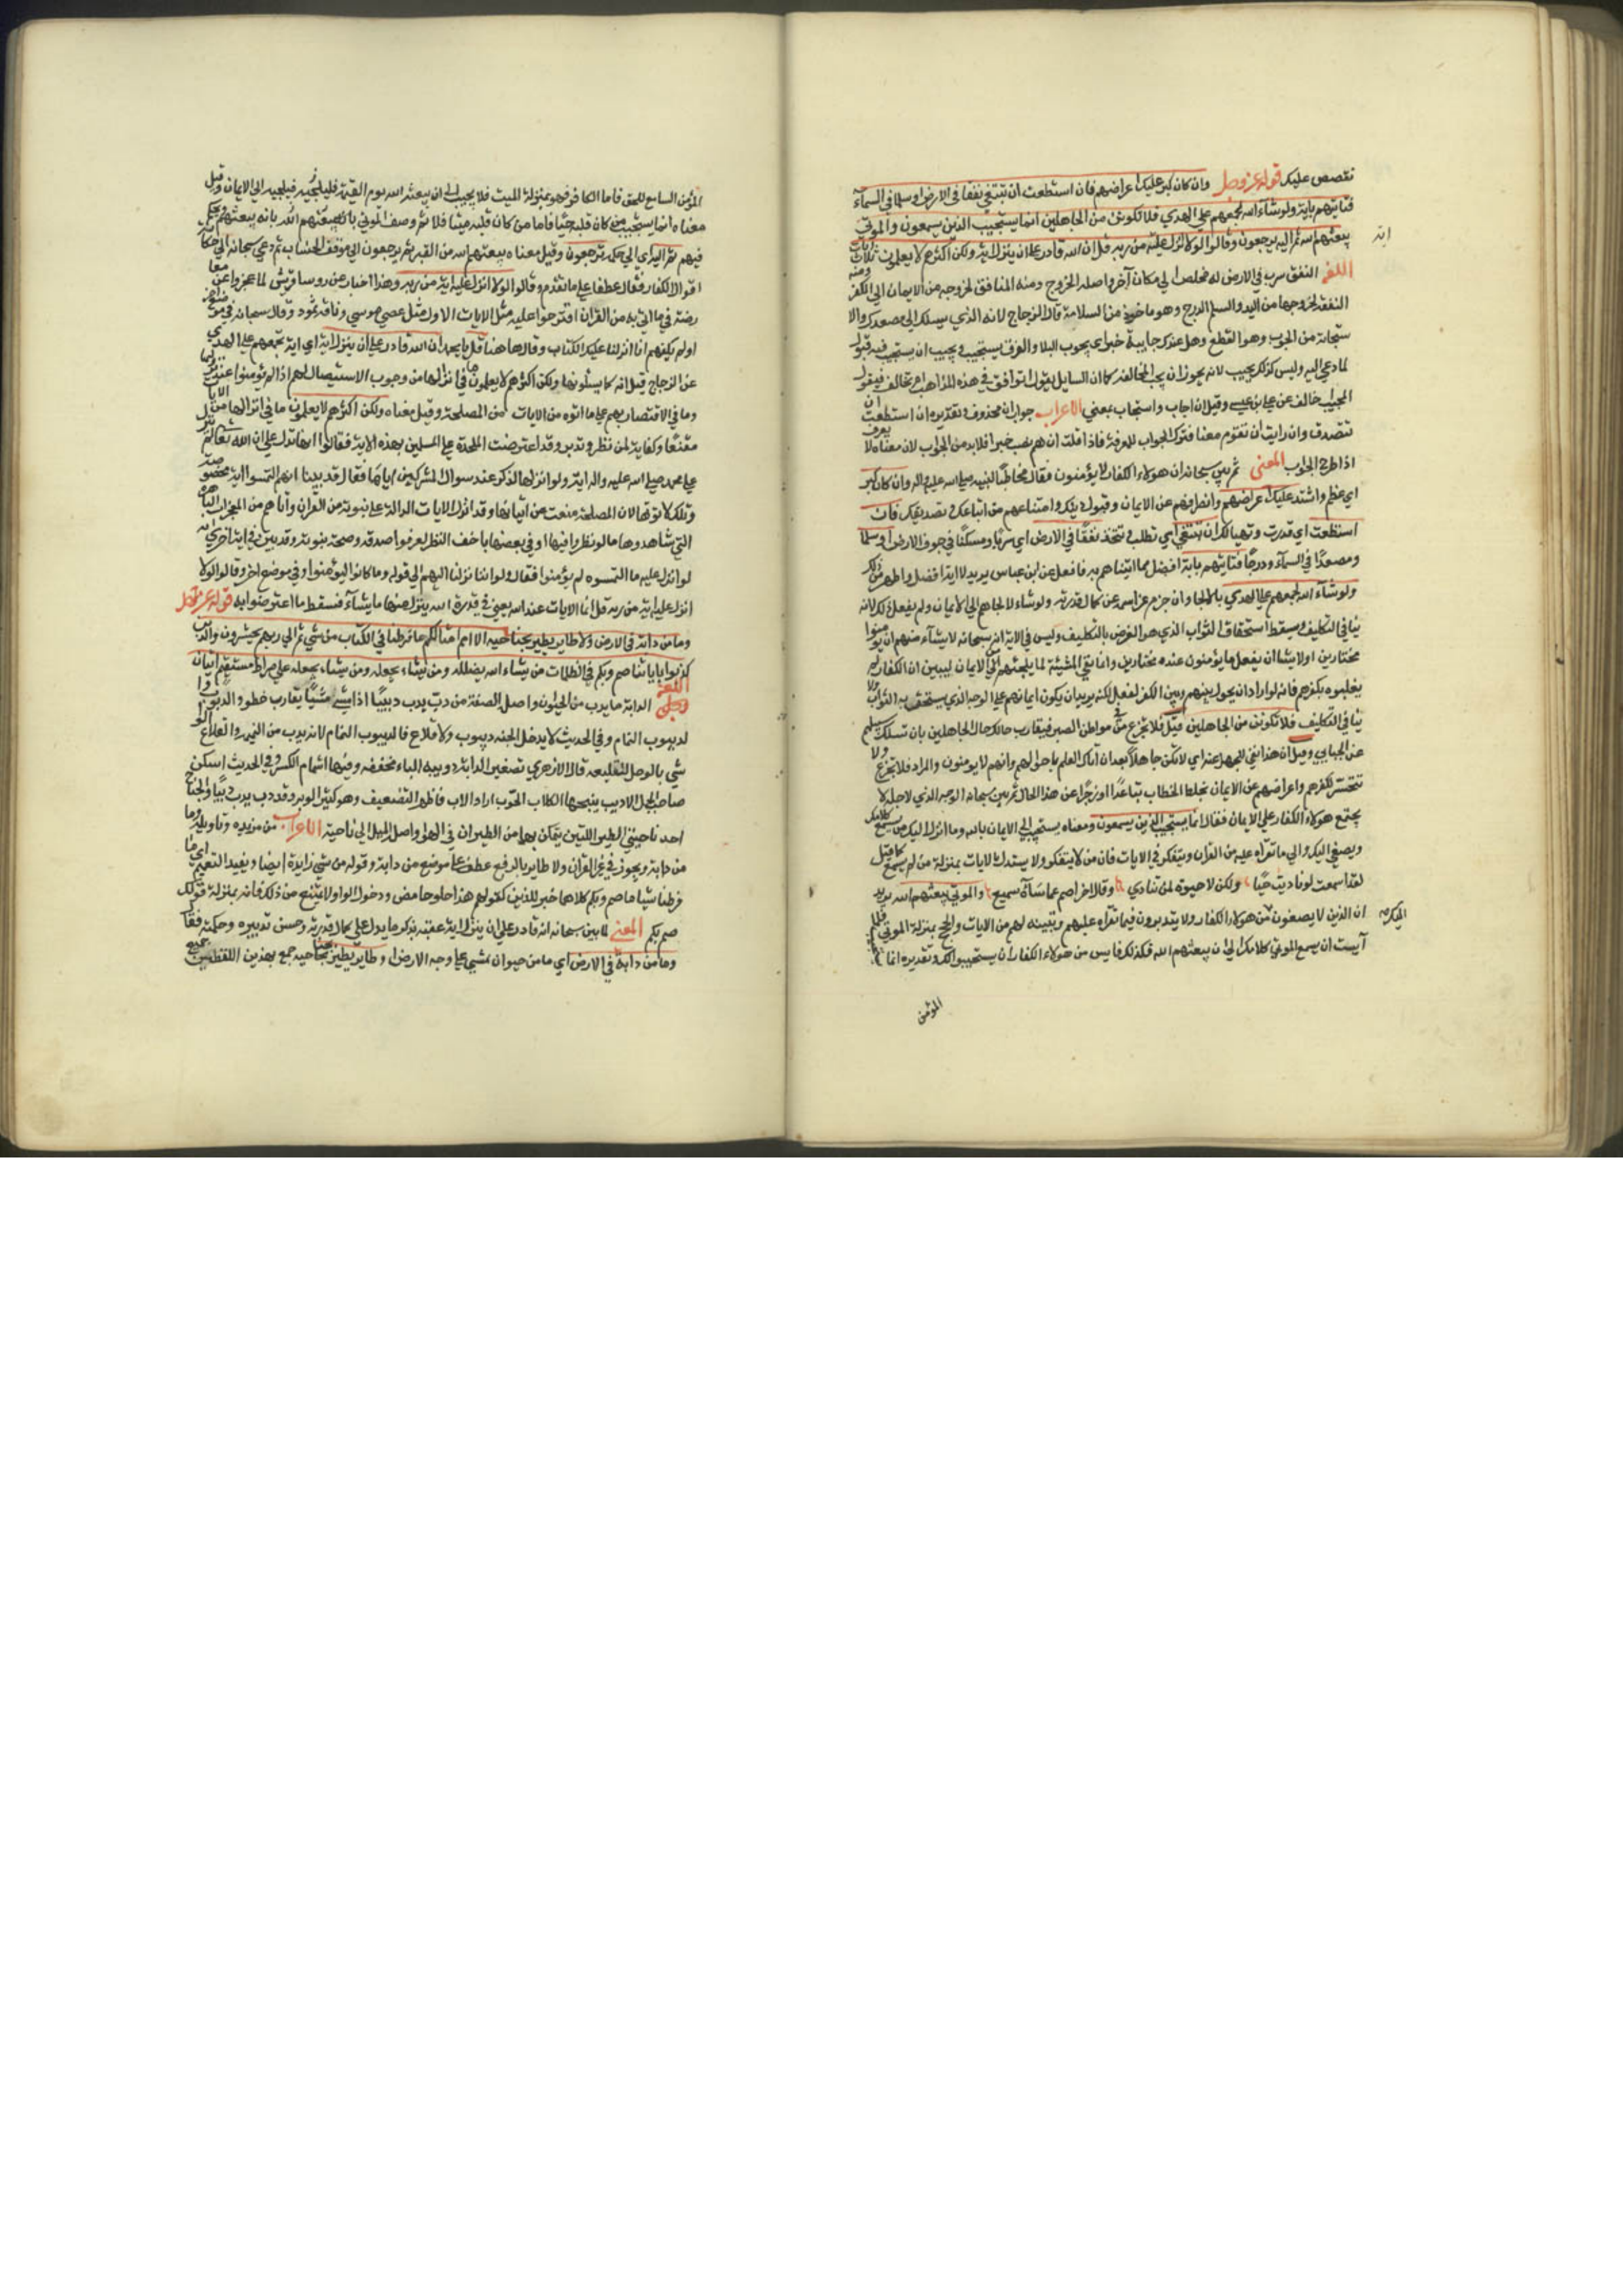 نقصص عليك قوله عز وجل وان كان كبر عليك اعراضهم فان استطعت ان تبتغي نفقا في الارض او سلما في السمآء
فتاتيهم باية ولو شآء الله لجمعهم على الهدي فلا تكونن من الجاهلين انما يستجيب الذين يسمعون والموتى
يبعثهم الله ثم اليه يرجعون وقالوا لولا نزل عليه اية من ربه قل ان الله قادر علي ان ينزل اية ولكن اكثرهم لا يعلمون ثلاث ايات
اللغز النفق سرب في الارض له مخلص الي مكان آخر واصله الخروج ومنه المنافق لخروجه من الايمان الي الكفر ومنه
النفقة لخروجها من اليد والسلم الدرج وهو ماخوذ من السلامة قال الزجاج لانه الذي يسلك الى مصعدك والا
ستجابة من الجوب وهو القطع وهل عندك جايبة خبر اى يجوب البلاد والفرق يستجيب ويجيب ان يستجيب فيه قبول
لما دعي اليه وليس كذلك يجيب لانه يجوز ان يجيب بالمخالفة كما ان السايل يقول اتوافق في هذه المذاهب ام تخالف فيقول
المجيب اخالف عن علي بن عيسى وقيل ان اجاب واستجاب بمعني الاعراب جواب ان محذوف وتقديره ان استطعت ان
تتصدق وان رايت ان تقوم معنا فترك الجواب للمعرفة فاذا قلت ان تقم نصب خيرا فلا بد من الجواب لان معناه لا يعرف
اذا طرح الجواب المعنى ثم بين سبحانه ان هولاء الكفار لا يؤمنون فقال مخاطبا لنبيه صلي الله عليه واله وان كان كبر
اي عظم واشتد عليك اعراضهم وانصرافهم عن الايمان وقبول دينك وامتناعهم من اتباعك وتصديقك فان
استطعت اي قدرت وتهيا لك ان تبتغي اي تطلب وتتخذ نفقا في الارض اي سربا ومسكنا في جوف الارض او سلما
ومصعدا في السمآء ودرجا فتاتيهم باية افضل مما اتيناهم به فافعل عن ابن عباس يريد لا اية افضل واظهر من ذلك
ولو شآء الله لجمعهم علي الهدي بالالجا وان جزم عز اسمه عن كمال قدرته ولو شاء لالجاهم الي الايمان ولم يفعل ذلك لانه
ينافي التكليف ويسقط استحقاق الثواب الذي هو الغرض بالتكليف وليس في الاية انه سبحانه لا يشآء منهم ان يؤمنوا
مختارين او لا يشا ان يفعل ما يؤمنون عنده مختارين وانما نفي المشيئة لما يلجئهم الي الايمان ليبين ان الكفار لم
يغلبوه بكفرهم فانه لو اراد ان يحول بينهم وبين الكفر لفعل لكنه يريد ان يكون ايمانهم علي الوجه الذي يستحق به الثواب ولا
ينافي التكليف فلا تكونن من الجاهلين قيل فلا تجزع في مواطن الصبر فيقارب حالك حال الجاهلين بان تسلك سبيلهم
عن الجبايي وقيل ان هذا نفي للجهل عنه اي لا تكن جاهلا بعد ان اتاك العلم باحوالهم وانهم لا يومنون والمراد فلا تجزع ولا
تتحسر لكفرهم واعراضهم عن الايمان فغلظ الخطاب تبعيدا وزجرا عن هذا الحال ثم بين سبحانه الوجه الذي لاجله لا
يجتمع هولاء الكفار علي الايمان فقال انما يستجيب الذين يسمعون ومعناه يستجيب الي الايمان بالله وما انزل اليك من يسمع كلامك
ويصغي اليك والي ما تقراه عليه من القران ويتفكر في الايات فان من لا يتفكر ولا يستدل بالايات بمنزلة من لم يسمع كما قيل
لقد اسمعت لو ناديت حيا ولكن لا حيوة لمن تنادي وقال اخر اصم عما سآه سميع والموتى يبعثهم الله يريد
ان الذين لا يصغون من هولاء الكفار ولا يتدبرون فيما تقراه عليهم وتبينه لهم من الايات والحجج بمنزلة الموتي فكما
آيست ان يسمع الموتي كلامك الى ان يبعثهم الله فكذلك فايس من هولاء الكفار ان يستجيبوا لك وتقديره انما
المؤمن
المؤمن السامع للحق فاما الكافر فهو بمنزلة الميت فلا يجيب الي ان يبعثه الله يوم القيمة فيلجيه الي الايمان وقيل
معناه انما يستجيب من كان قلبه حيا فاما من كان قلبه ميتا فلا ثم وصف الموتي بانه يبعثهم الله ويحكم
فيهم ثم اليه اي الي حكمه يرجعون وقيل معناه يبعثهم الله من القبر ثم يرجعون الي موقف الحساب ثم دعي سبحانه الي حكاية
اقوال الكفار فقال عطفا علي ما تقدم وقالوا لولا انزل عليه اية من ربه وهذا اخبار عن روسا قريش لما عجزوا عن معا
رضته فيما اتي به من القرآن اقترحوا عليه مثل الايات الاول مثل عصي موسي وناقة ثمود وقال سبحانه في موضع اخر
اولم يكفهم انا انزلنا عليك الكتاب وقال هاهنا قل يا محمد ان الله قادر علي ان ينزل اية اي اية تجمعهم علي الهدي
عن الزجاج قيل اية كما يسئلونها ولكن اكثرهم لا يعلمون ما في انزالها من وجوب الاستيصال لهم اذا لم يؤمنوا عند نزولها
وما في الاقتصار بهم علي ما اتوه من الايات من المصلحة وقيل معناه ولكن اكثرهم لا يعلمون ما في انزالها من الايات
مقنعا وكفاية لمن نظر وتدبر وقد اعترضت الملحدة علي المسلمين بهذه الاية فقالوا انها تدل علي ان الله تعالى لم ينزل
علي محمد صلي الله عليه واله اية ولو انزلها لذكر عند سوال المشركين اياها فقال قد بينا انهم التمسوا اية مخصوصة
وتلك لا توتها لان المصلحة منعت من اتيانها وقد انزل الايات الدالة علي نبوته من القرآن واتاهم من المعجزات الباهرة
التي شاهدوها ما لو نظروا فيها او في بعضها باخف النظر لعرفوا صدقه وصحة نبوته وقد بين في اية اخري انه
لو انزل عليه ما التمسوه لم يؤمنوا فقال ولو اننا نزلنا اليهم الي قوله وما كانوا ليؤمنوا وفي موضع اخر وقالوا لولا
انزل عليه اية من ربه قل انما الايات عند الله يعني في قدرة الله ينزل منها ما يشآء فسقط ما اعترضوا به قوله عز وجل
وما من دابة في الارض ولا طاير يطير بجناحيه الا امم امثالكم ما فرطنا في الكتاب من شي ثم الي ربهم يحشرون والذين
كذبوا باياتنا صم وبكم في الظلمات من يشاء الله يضلله ومن يشاء يجعله علي صراط مستقيم ايتان
اللغز الدابة ما يدب من الحيوان واصله الصفة من دب يدب دبيبا اذا مشي مشيا يقارب خطوه والديبوب وا
لديبوب النمام وفي الحديث لا يدخل الجنة ديبوب ولا قلاع فالديبوب النمام لانه يدب من النميمة والقلاع الوا
شي بالرجل ليقلعه قال الازهري تصغير الدابة دويبه الباء مخففه وفيها اشمام الكسر وفي الحديث ايتكن
صاحبة الجمل الاديب ينبحها الكلاب الحوب اراد الادب فاظهر التضعيف وهو كثير الوبر وقد دب يدب دبيبا والجناح
احد ناحيتي الطير اللتين يتمكن بهما من الطيران في الهوا واصله الميل الي ناحية الاعراب من مزيدة وتاويله وما
من دابة ويجوز في غير القران ولا طاير بالرفع عطفا علي موضع من دابة وقوله من شي زايدة ايضا ويفيد التعميم اي ما
فرطنا شيا ما صم وبكم كلاهما خبر للذين كقولهم هذا حلو حامض ودخول الواو لا يمنع من ذلك فانه بمنزلة قولك
صم بكم المعنى لما بين سبحانه انه قادر علي ان ينزل اية عقبه بذكر ما يدل علي كمال قدرته وحسن تدبيره وحكمته فقال
وما من دابة في الارض اي ما من حيوان يمشي علي وجه الارض ولا طاير يطير بجناحيه جمع بهذين اللفظين جميع